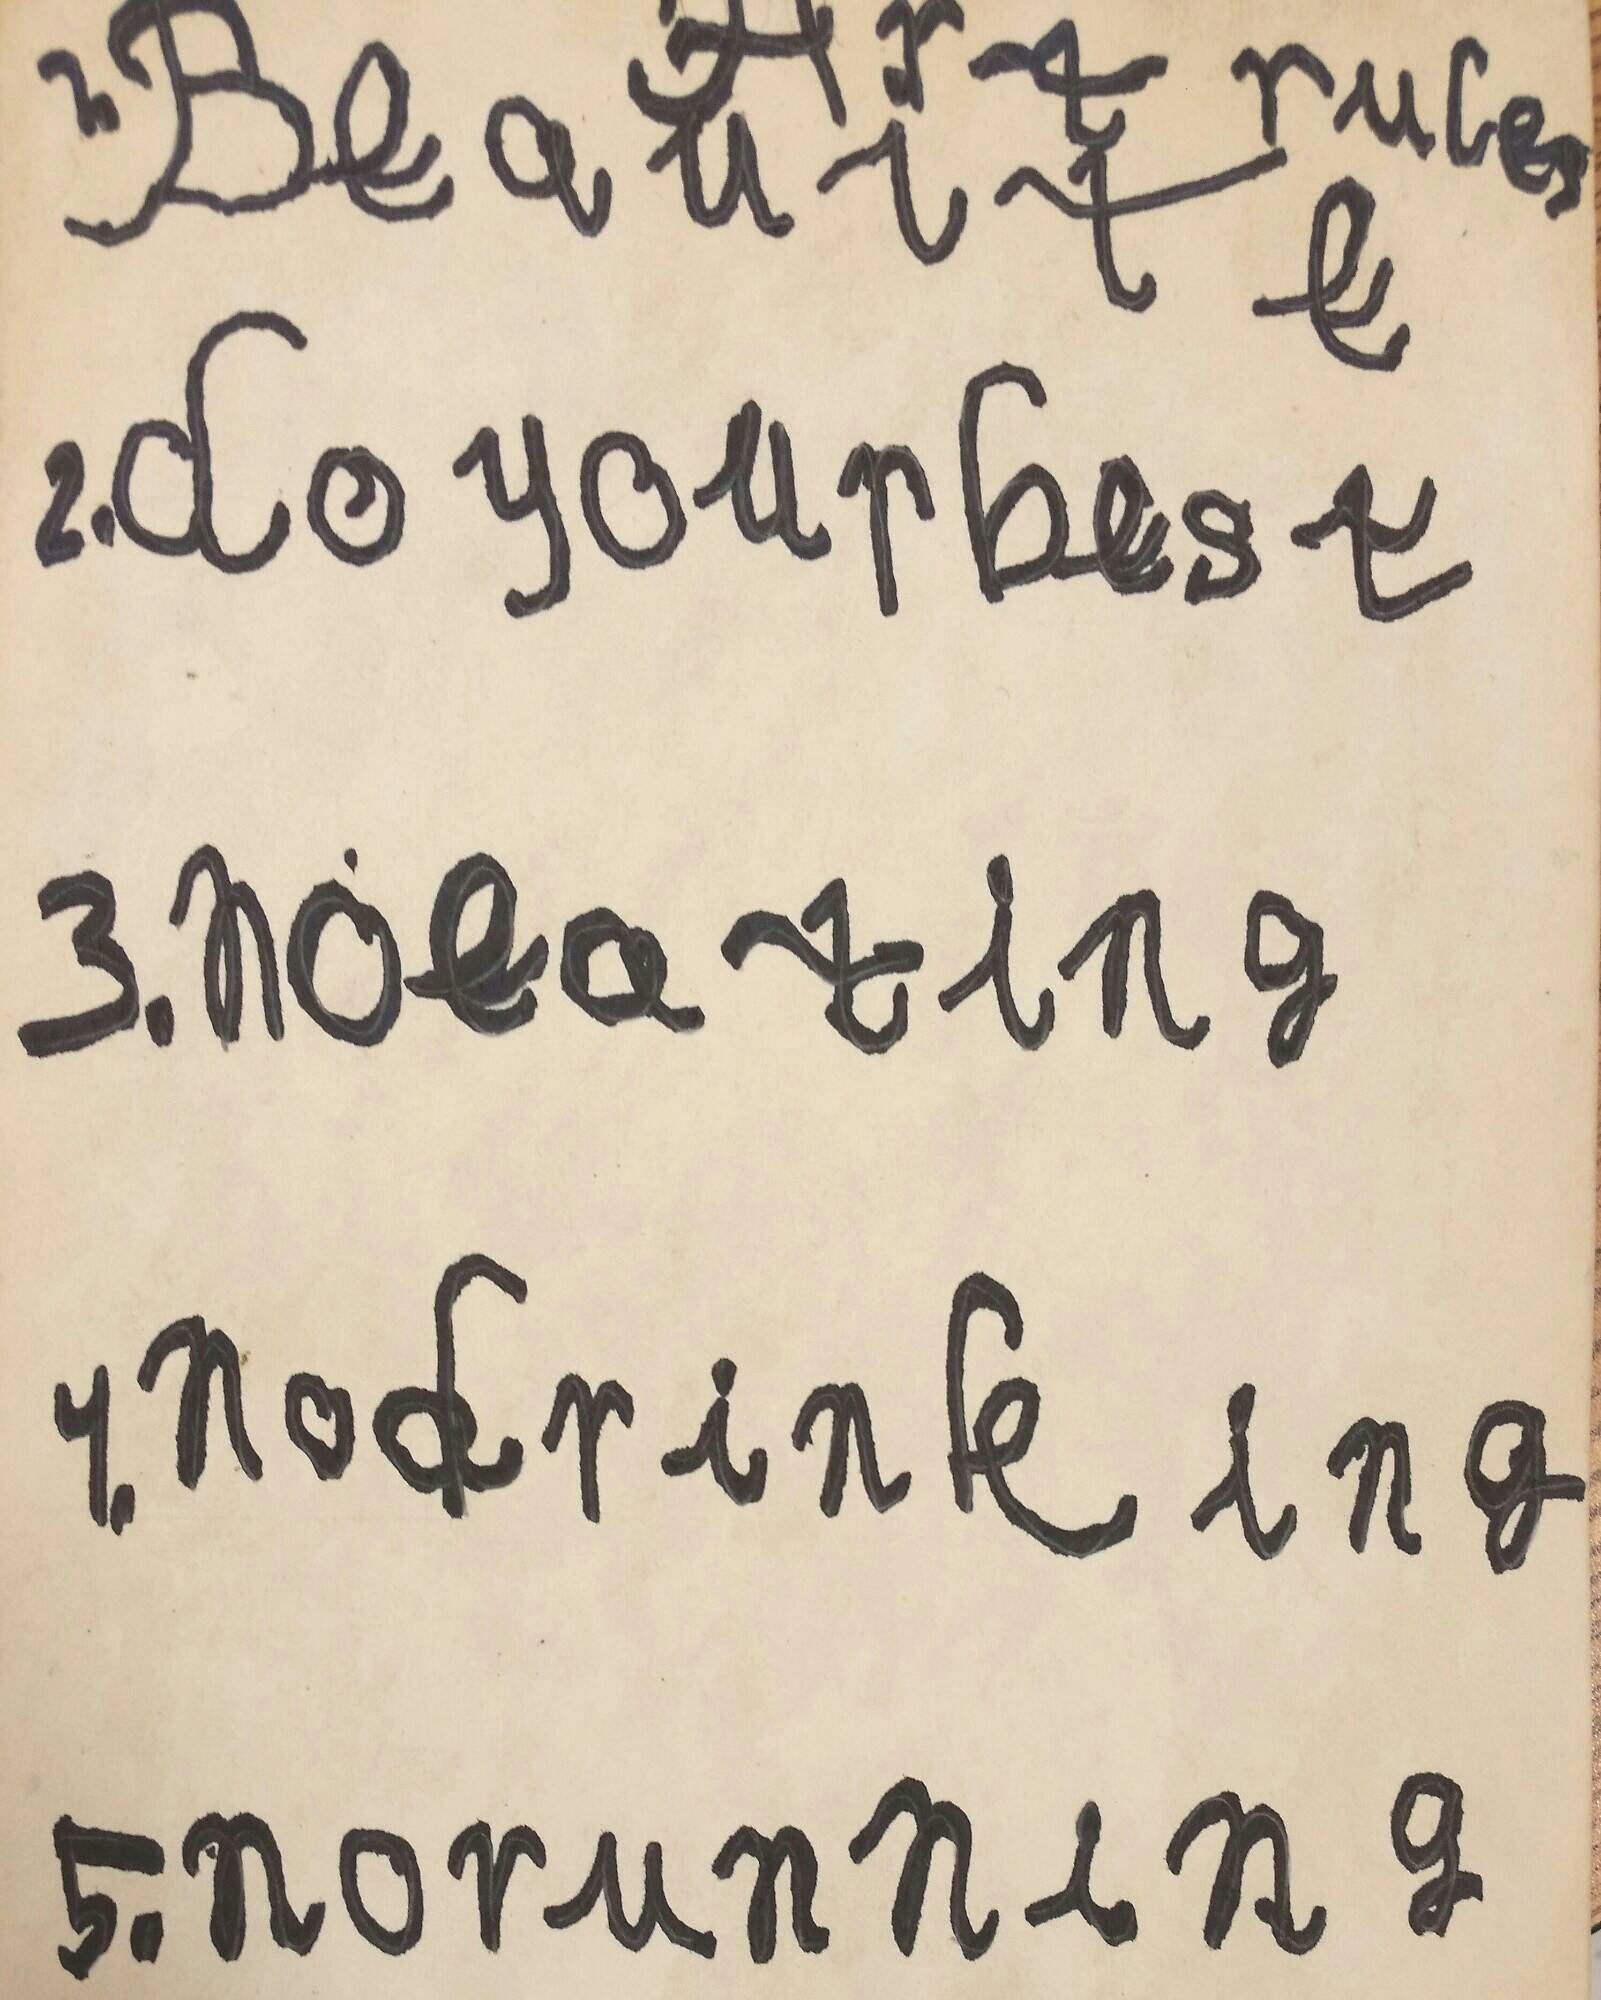 Art rules
1. Be quite
2. do your best
3. no eating
4. no drinking
5. no running